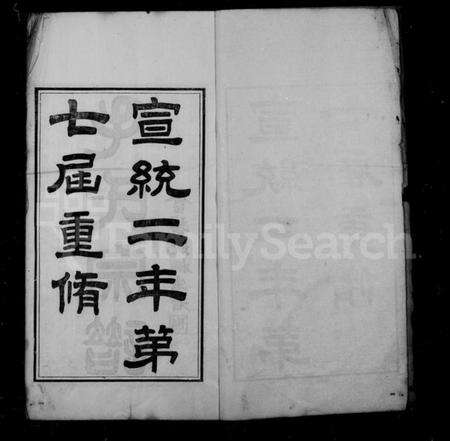 宣統二年第
七届重脩
FamilySearch